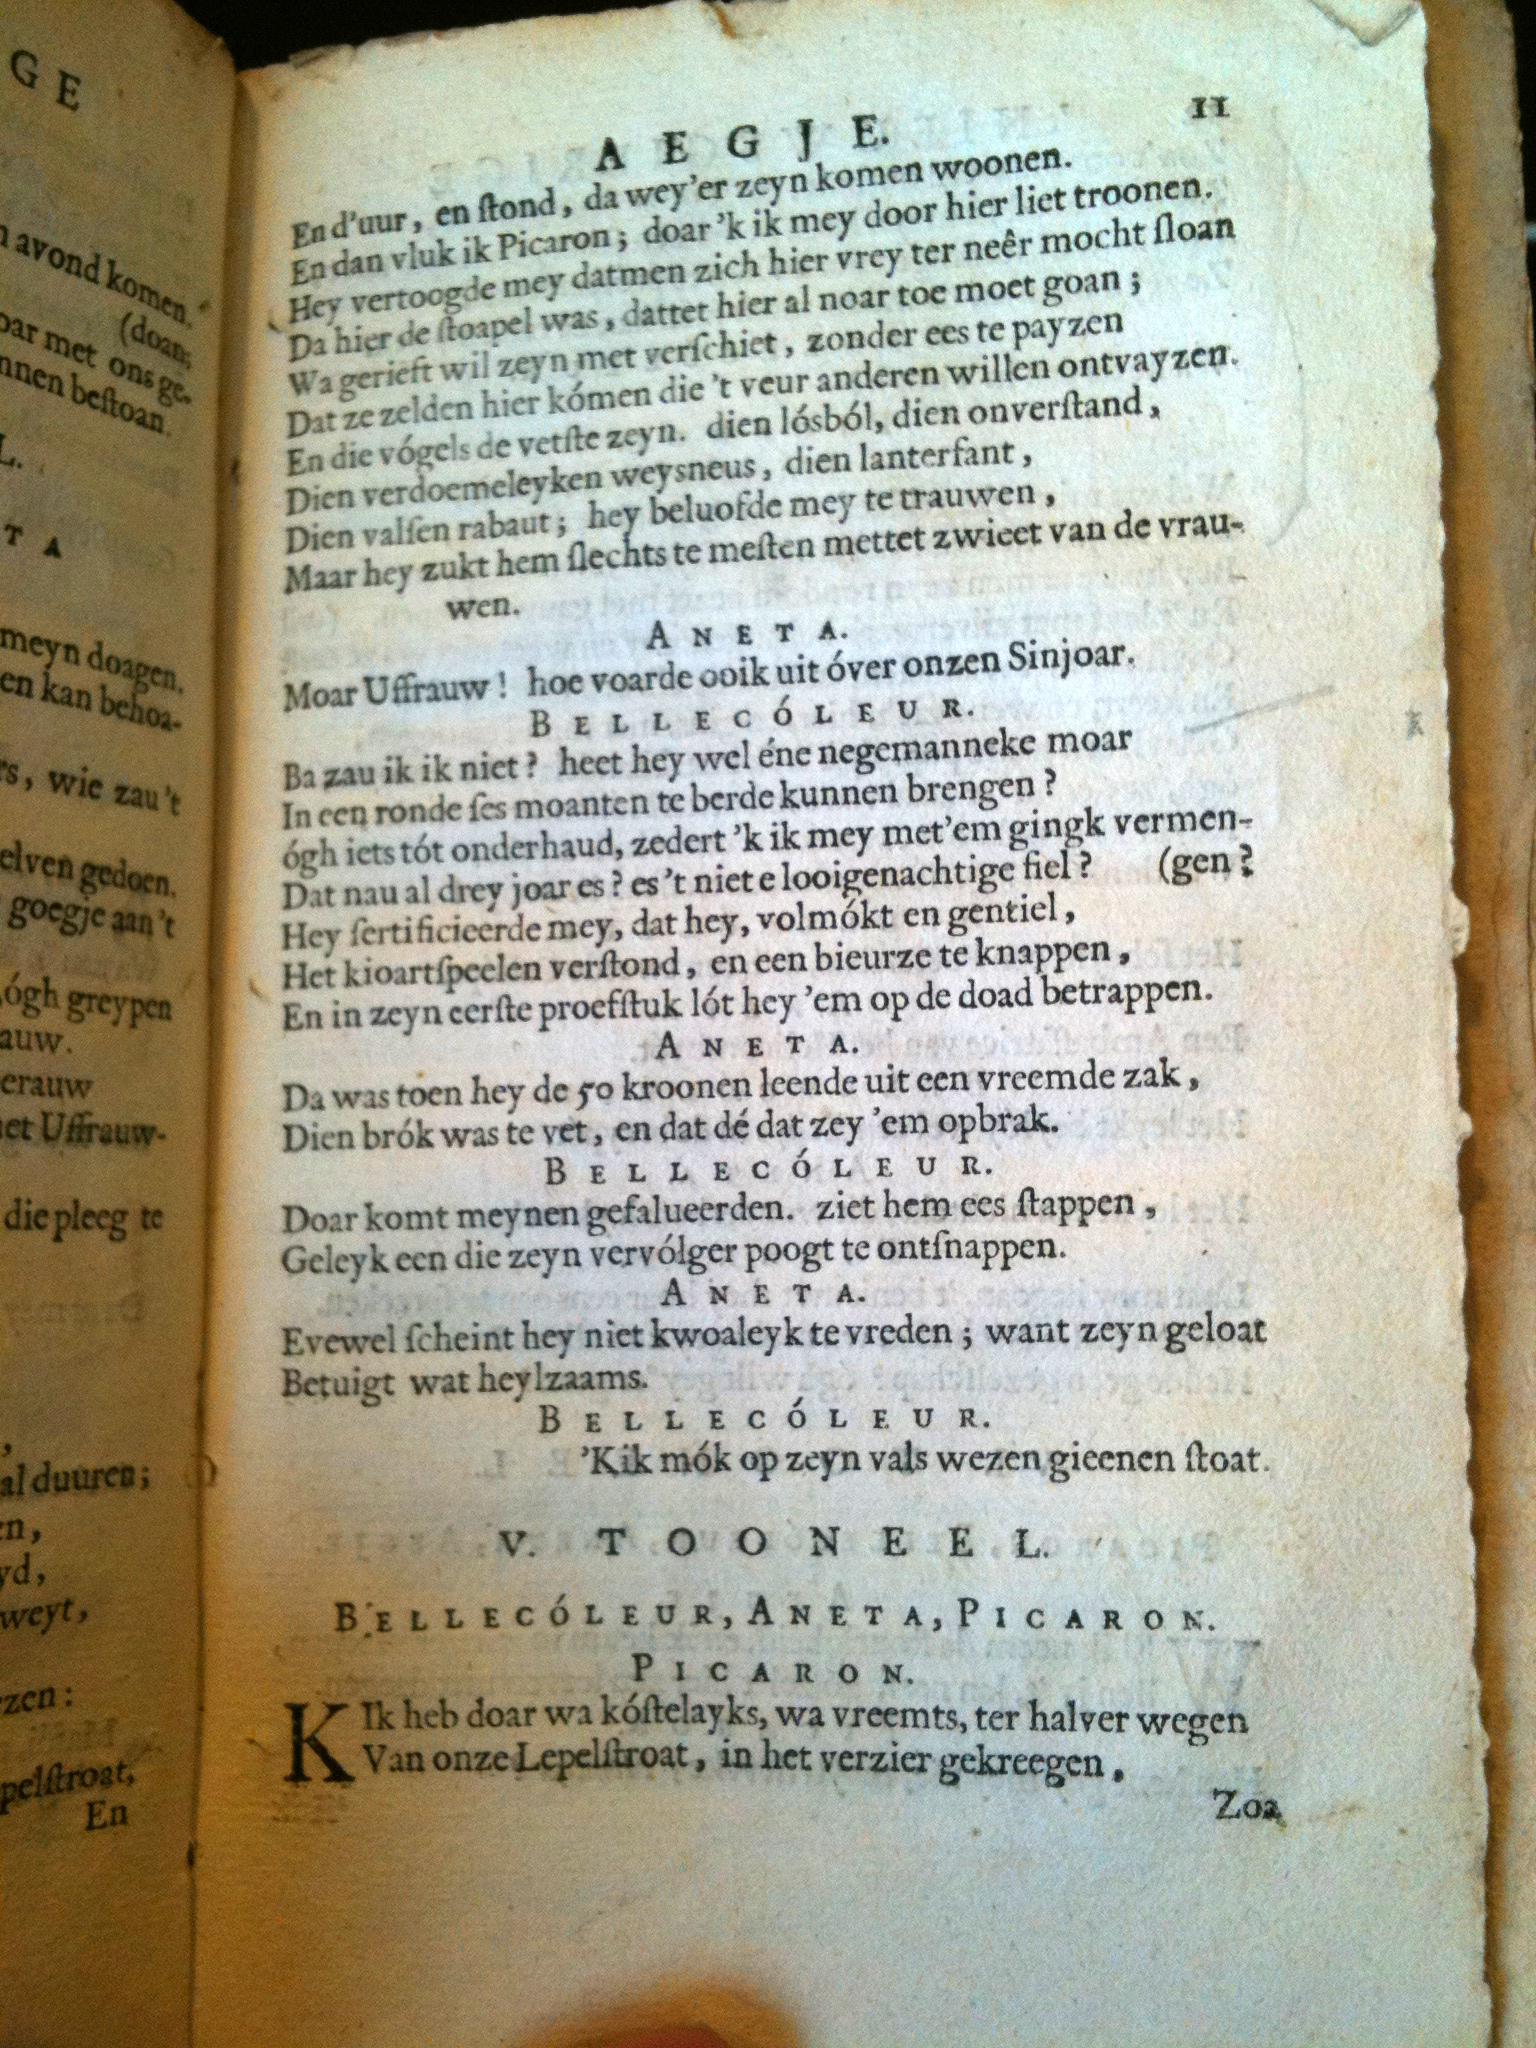 GE
avond komen.
(doan;
oar met ons ge-
nnen bestoan.
L.
T A
meyn doagen.
en kan behoa-
rs, wie zau 't
elven gedoen.
goegje aan 't
ógh greypen
auw.
erauw
et Uffrauw-
die pleeg te
al duuren;
en,
yd,
weyt,
zen:
pelstroat,
En
AEGJE. 11
En d'uur, en stond, da wey'er zeyn komen woonen.
En dan vluk ik Picaron; doar 'k ik mey door hier liet troonen.
Hey vertoogde mey datmen zich hier vrey ter neêr mocht sloan
Da hier de stoapel was, dattet hier al noar toe moet goan;
Wa gerieft wil zeyn met verschiet, zonder ees te payzen
Dat ze zelden hier kómen die 't veur anderen willen ontvayzen.
En die vógels de vetste zeyn. dien lósból, dien onverstand,
Dien verdoemeleyken weysneus, dien lanterfant,
Dien valsen rabaut; hey beluofde mey te trauwen,
Maar hey zukt hem slechts te mesten mettet zwieet van de vrau-
wen.
ANETA.
Moar Uffrauw! hoe voarde ooik uit óver onzen Sinjoar.
BELLECÓLEUR.
Ba zau ik ik niet? heet hey wel éne negemanneke moar
In een ronde ses moanten te berde kunnen brengen?
ógh iets tót onderhaud, zedert 'k ik mey met'em gingk vermen-
Dat nau al drey joar es? es 't niet e looigenachtige fiel? (gen?
Hey sertificieerde mey, dat hey, volmókt en gentiel,
Het kioartspeelen verstond, en een bieurze te knappen,
En in zeyn eerste proefstuk lót hey 'em op de doad betrappen.
ANETA.
Da was toen hey de 50 kroonen leende uit een vreemde zak,
Dien brók was te vet, en dat dé dat zey 'em opbrak.
BELLECÓLEUR.
Doar komt meynen gefalueerden. ziet hem ees stappen,
Geleyk een die zeyn vervólger poogt te ontsnappen.
ANETA.
Evewel scheint hey niet kwoaleyk te vreden; want zeyn geloat
Betuigt wat heylzaams.
BELLECÓLEUR.
'Kik mók op zeyn vals wezen gieenen stoat.
V. TOONEEL.
BELLECÓLEUR, ANETA, PICARON.
PICARON.
KIk heb doar wa kóstelayks, wa vreemts, ter halver wegen
Van onze Lepelstroat, in het verzier gekreegen,
Zoa